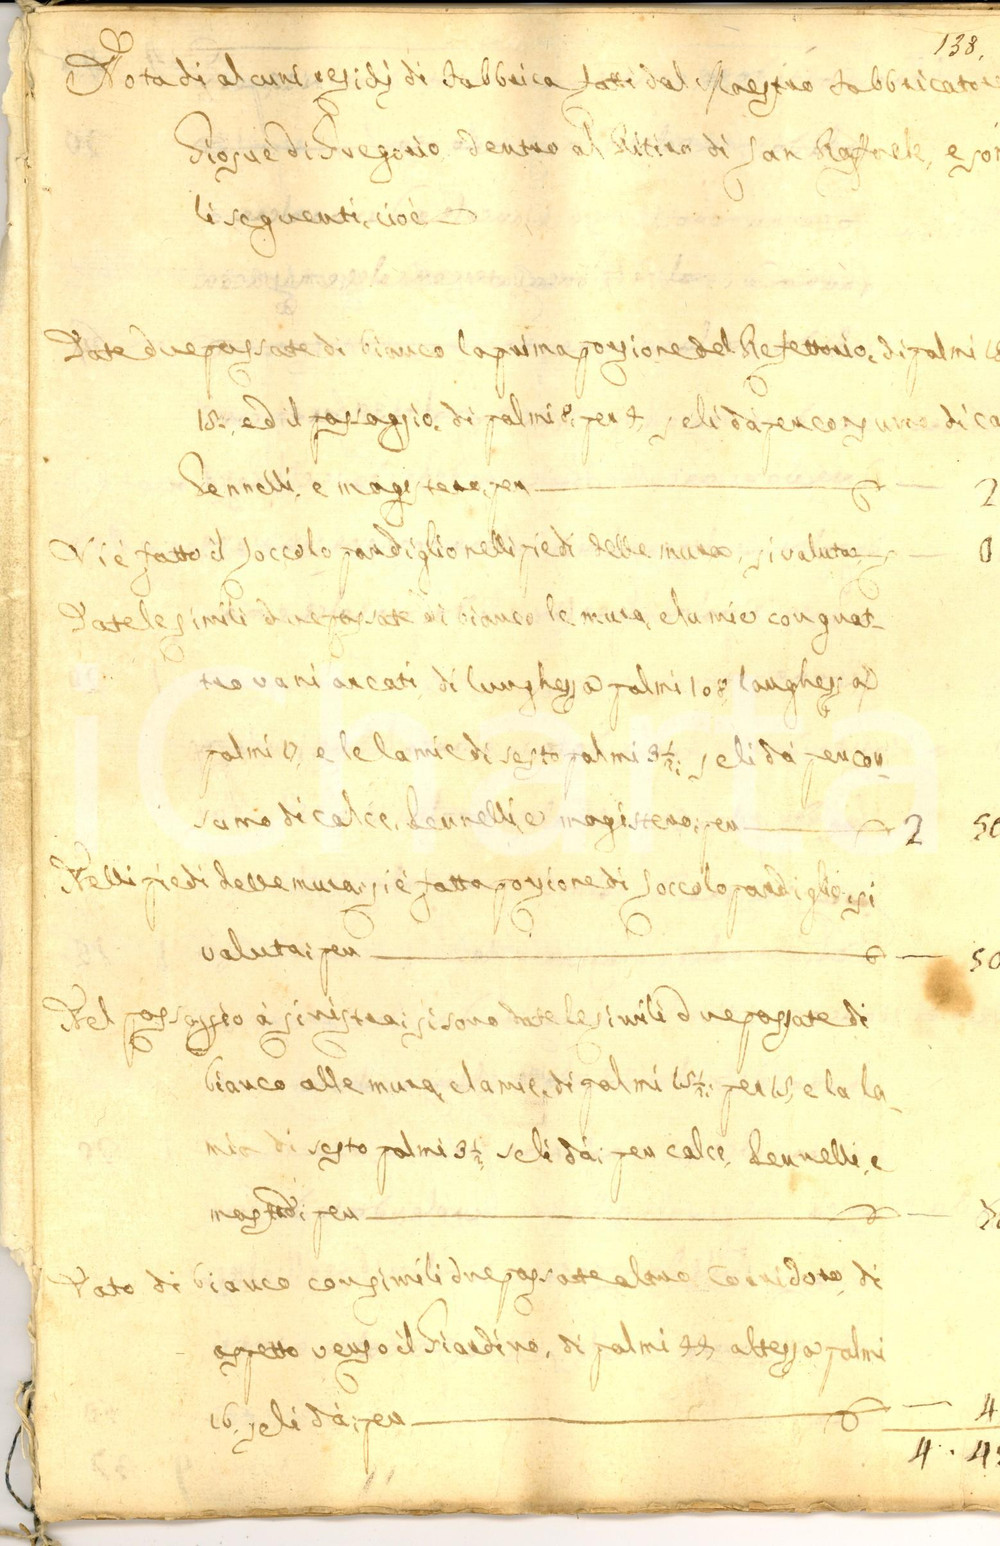 138.
Nota di alcuni residij di fabbrica fatti dal Maestro fabbricatore
Giosuè di Gregorio dentro al Ritiro di San Raffaele, e son
li seguenti, cioè
Date due passate di bianco la prima porzione del Refettorio, di palmi
18:, ed il passaggio, di palmi 8: per 4, seli dà per consumo di ca
Pennelli, e magistero, per 2
Vi è fatto il Zoccolo pardiglio nelli piedi delle mura, si valuta
Date le simili due passate di bianco le mura, e lamie con quat-
tro vani arcati di lunghezza palmi 108, larghezza
palmi e le lamie di sesto palmi 3½; seli dà per con-
sumo di calce, Pennelli, e magistero, per 2 50
Nelli piedi delle mura, si è fatta porzione di Zoccolo pardiglio, si
valuta; per 50
Nel passaggio à sinistra; si sono date le simili due passate di
bianco alle mura, e lamie, di palmi 15½; per 15, e la la-
mia di sesto palmi 3½ seli dà; per calce, Pennelli, e
per
Dato di bianco con simili due passate altro Corridoro, di
aspetto verso il Giardino, di palmi 44 altezza palmi
16, seli dà; per 4
4 . 4